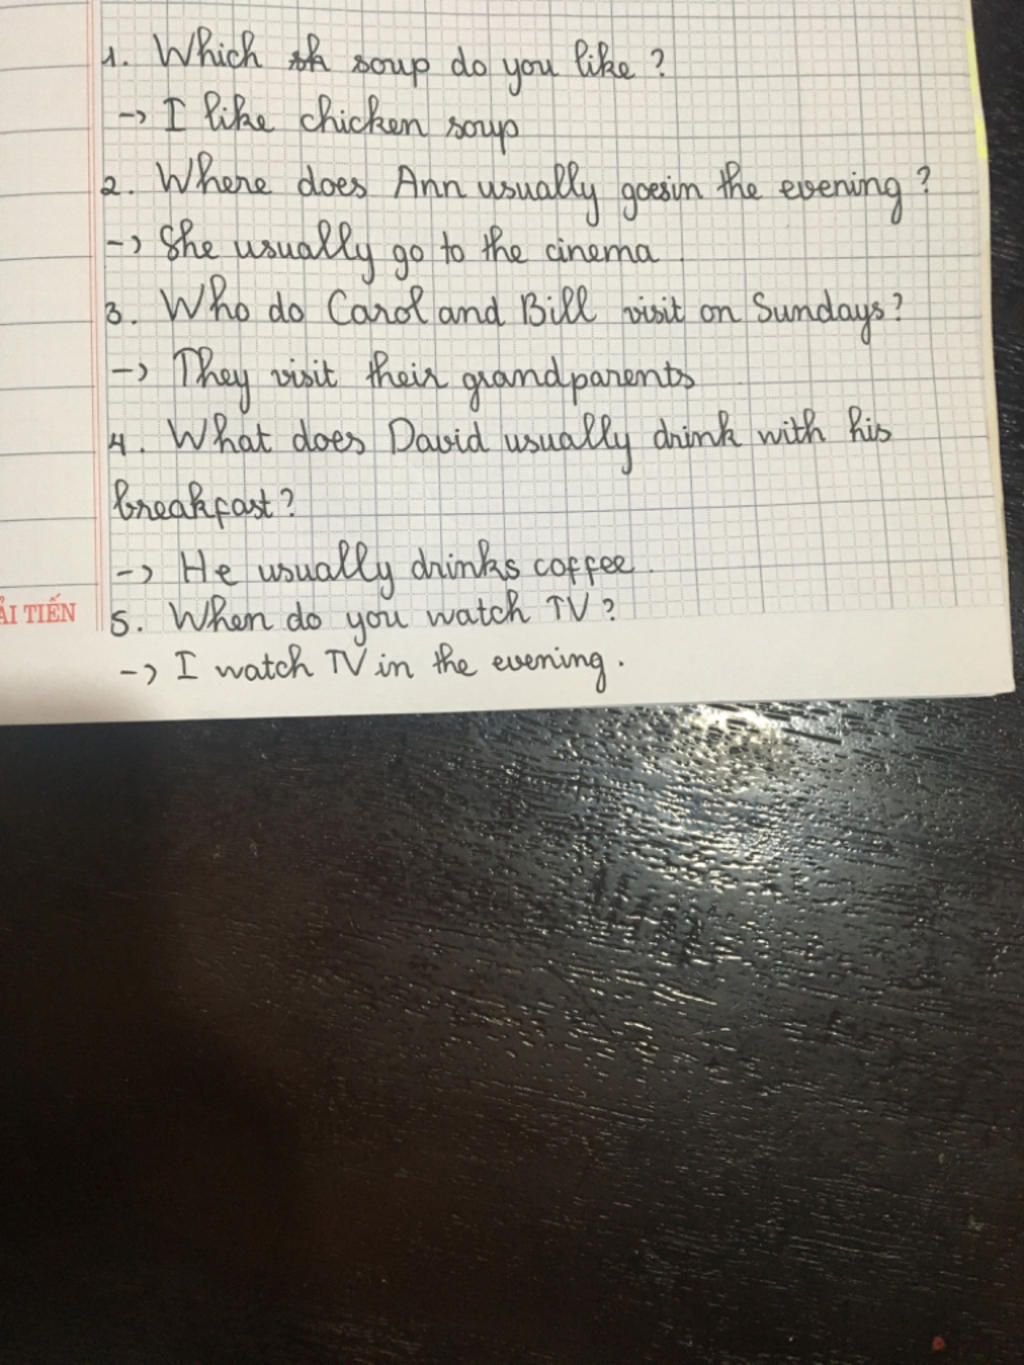 1. Which soup do you like ?
-> I like chicken soup
2. Where does Ann usually goesin the evening ?
-> She usually go to the cinema .
3. Who do Carol and Bill visit on Sundays ?
-> They visit their grandparents
4. What does David usually drink with his
breakfast ?
-> He usually drinks coffee .
ẢI TIẾN
5. When do you watch TV ?
-> I watch TV in the evening .